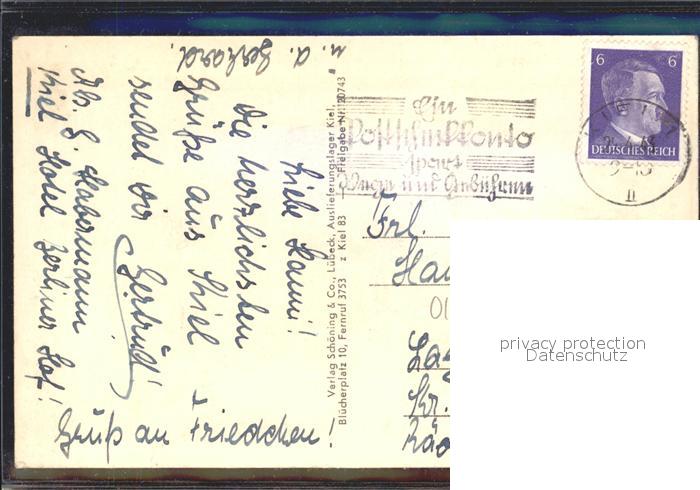 u. a. Gerhard.
Liebe Hanni!
Die herzlichsten
Grüße aus Kiel
sendet dir Gertrud!
Abs. G. Habermann
Kiel Hotel Berliner Hof!
Gruß an Friedchen!
Verlag Schöning & Co., Lübeck, Auslieferungslager Kiel,
Blücherplatz 10, Fernruf 3753 z Kiel 83 Freigabe Nr. 20743
Ein
Postscheckkonto
spart
Wege und Gebühren
6 6
DEUTSCHES REICH
Frl.
Kr.
privacy protection
Datenschutz